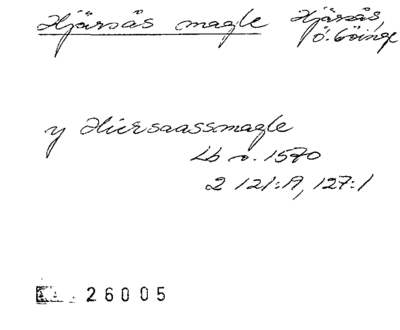 Hjärsås magle Hjärsås,
Ö. Göinge
y Hiersaassmagle
Lb o. 1570
2 121:A, 127:1
26005